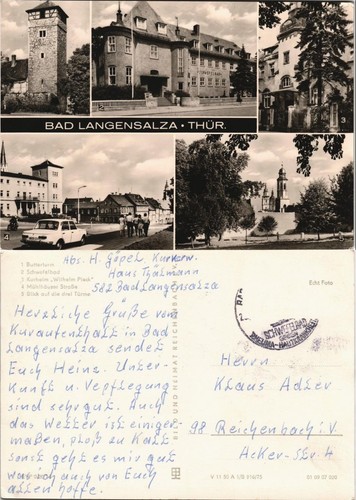 BAD LANGENSALZA · THÜR.
2
3
4
1 Butterturm
2 Schwefelbad
3 Kurheim „Wilhelm Pieck"
4 Mühlhäuser Straße
5 Blick auf die drei Türme
Echt Foto
Abs. H. Göpel, Kurverw.
Haus Thälmann
582 Bad Langensalza
Herzliche Grüße vom
Kuraufenthalt in Bad
Langensalza sendet
Euch Heinz. Unter-
kunft u. Verpflegung
sind sehr gut. Auch
das Wetter ist einiger-
maßen, bloß zu kalt
sonst geht es mir gut
was ich auch von Euch
allen hoffe.
BILD UND HEIMAT REICHENBACH
SCHWEFELBAD
Herrn
Klaus Adler
98 Reichenbach i. V.
Acker-Str 4
V 11 50 A 1/B 616/75
01 09 07 020